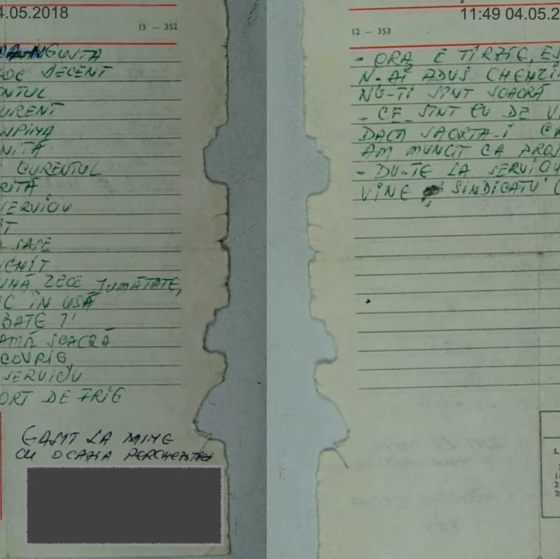 4.05.2018
13 - 352
NGUSTA
OC DECENT
ENTUL
URENT
ENPINA
NITĂ
CURENTUL
RITĂ
SERVICIU
IT
SAPE
ICNIT
INĂ ZECE JUMĂTATE,
C ÎN UȘĂ
BATE ?!
AMĂ SOACRĂ
COVRIG
SERVICIU
ORT DE FRIG
GĂSIT LA MINE
CU OCAZIA PERCHEZIȚIEI
11:49 04.05.2
12 - 353
- ORA E TÎRZIE, ES
N-AI ADUS CHENZI
NU-ȚI SÎNT SOACRĂ
- CE SÎNT EU DE VI
DACĂ SOARTA-I CR
AM MUNCIT CA PROS
- DU-TE LA SERVICIU
VINE SINDICATU